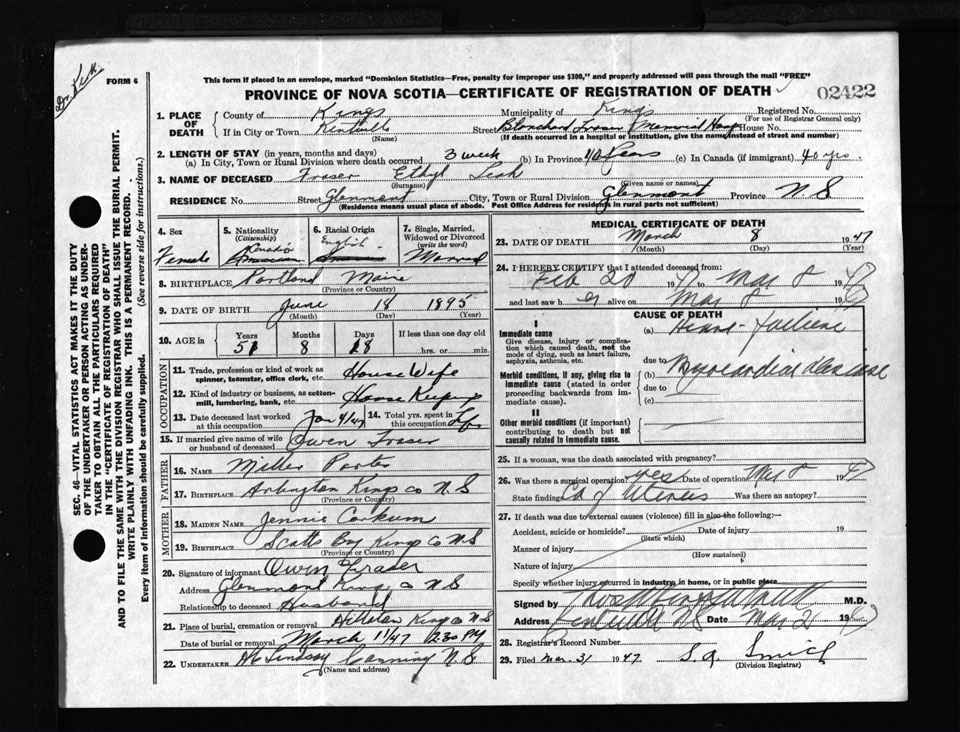 FORM 6
This form if placed in an envelope, marked "Dominion Statistics—Free, penalty for improper use $300," and properly addressed will pass through the mail "FREE"
PROVINCE OF NOVA SCOTIA—CERTIFICATE OF REGISTRATION OF DEATH
02422
1. PLACE OF DEATH
County of Kings
Municipality of Kings
Registered No.
(For use of Registrar General only)
If in City or Town Kentville
(Name)
Street Memorial House No.
(If death occurred in a hospital or institution, give the name instead of street and number)
2. LENGTH OF STAY (in years, months and days)
(a) In City, Town or Rural Division where death occurred 3 week (b) In Province 40 Years (c) In Canada (if immigrant) 40 yrs.
3. NAME OF DECEASED Fraser Ethyl Leah
(Surname) (Given name or names)
RESIDENCE No. Street Glenmont City, Town or Rural Division Glenmont Province N S
(Residence means usual place of abode. Post Office Address for residents in rural parts not sufficient)
4. Sex
Female
5. Nationality
(Citizenship)
Canadian
6. Racial Origin
English
7. Single, Married, Widowed or Divorced
(write the word)
Married
8. BIRTHPLACE Portland Maine
(Province or Country)
9. DATE OF BIRTH June 18 1895
(Month) (Day) (Year)
10. AGE in
Years Months Days If less than one day old
51 8 18 hrs. or min.
OCCUPATION
11. Trade, profession or kind of work as spinner, teamster, office clerk, etc. House Wife
12. Kind of industry or business, as cotton-mill, lumbering, bank, etc. House Keeping
13. Date deceased last worked at this occupation Jan 4/47
14. Total yrs. spent in this occupation Life
15. If married give name of wife or husband of deceased Owen Fraser
FATHER
16. NAME Miller Porter
17. BIRTHPLACE Arlington Kings Co N S
(Province or Country)
MOTHER
18. MAIDEN NAME Jennie Corkum
19. BIRTHPLACE Scotts Bay Kings Co N S
(Province or Country)
20. Signature of informant Owen Fraser
Address Glenmont Kings Co N S
Relationship to deceased Husband
21. Place of burial, cremation or removal Kings Co N S
Date of burial or removal March 11/47 2.30 PM
22. UNDERTAKER Lindsay Canning N.S
(Name and address)
MEDICAL CERTIFICATE OF DEATH
23. DATE OF DEATH March 8 1947
(Month) (Day) (Year)
24. I HEREBY CERTIFY that I attended deceased from:
Feb 20 1947 to Mar 8 1947
and last saw her alive on Mar 8 1947
CAUSE OF DEATH
I
Immediate cause
Give disease, injury or complication which caused death, not the mode of dying, such as heart failure, asphyxia, asthenia, etc.
(a) Heart Failure
due to
Morbid conditions, if any, giving rise to immediate cause (stated in order proceeding backwards from immediate cause).
(b) Myocardial disease
due to
(c)
II
Other morbid conditions (if important) contributing to death but not causally related to immediate cause.
25. If a woman, was the death associated with pregnancy?
26. Was there surgical operation? yes Date of operation Mar 8 1947
State finding Ca of Uterus Was there an autopsy?
27. If death was due to external causes (violence) fill in also the following:—
Accident, suicide or homicide? Date of injury 19
(State which)
Manner of injury
(How sustained)
Nature of injury
Specify whether injury occurred in industry, in home, or in public place
Signed by M.D.
Address Kentville NS Date Mar 21 1947
28. Registrar's Record Number
29. Filed Mar. 31 1947 S. A. Smith
(Division Registrar)
SEC. 46—VITAL STATISTICS ACT MAKES IT THE DUTY OF THE UNDERTAKER OR PERSON ACTING AS UNDERTAKER TO OBTAIN ALL THE PARTICULARS REQUIRED IN THE "CERTIFICATE OF REGISTRATION OF DEATH" AND TO FILE THE SAME WITH THE DIVISION REGISTRAR WHO SHALL ISSUE THE BURIAL PERMIT.
WRITE PLAINLY WITH UNFADING INK. THIS IS A PERMANENT RECORD.
Every item of information should be carefully supplied. (See reverse side for instructions.)